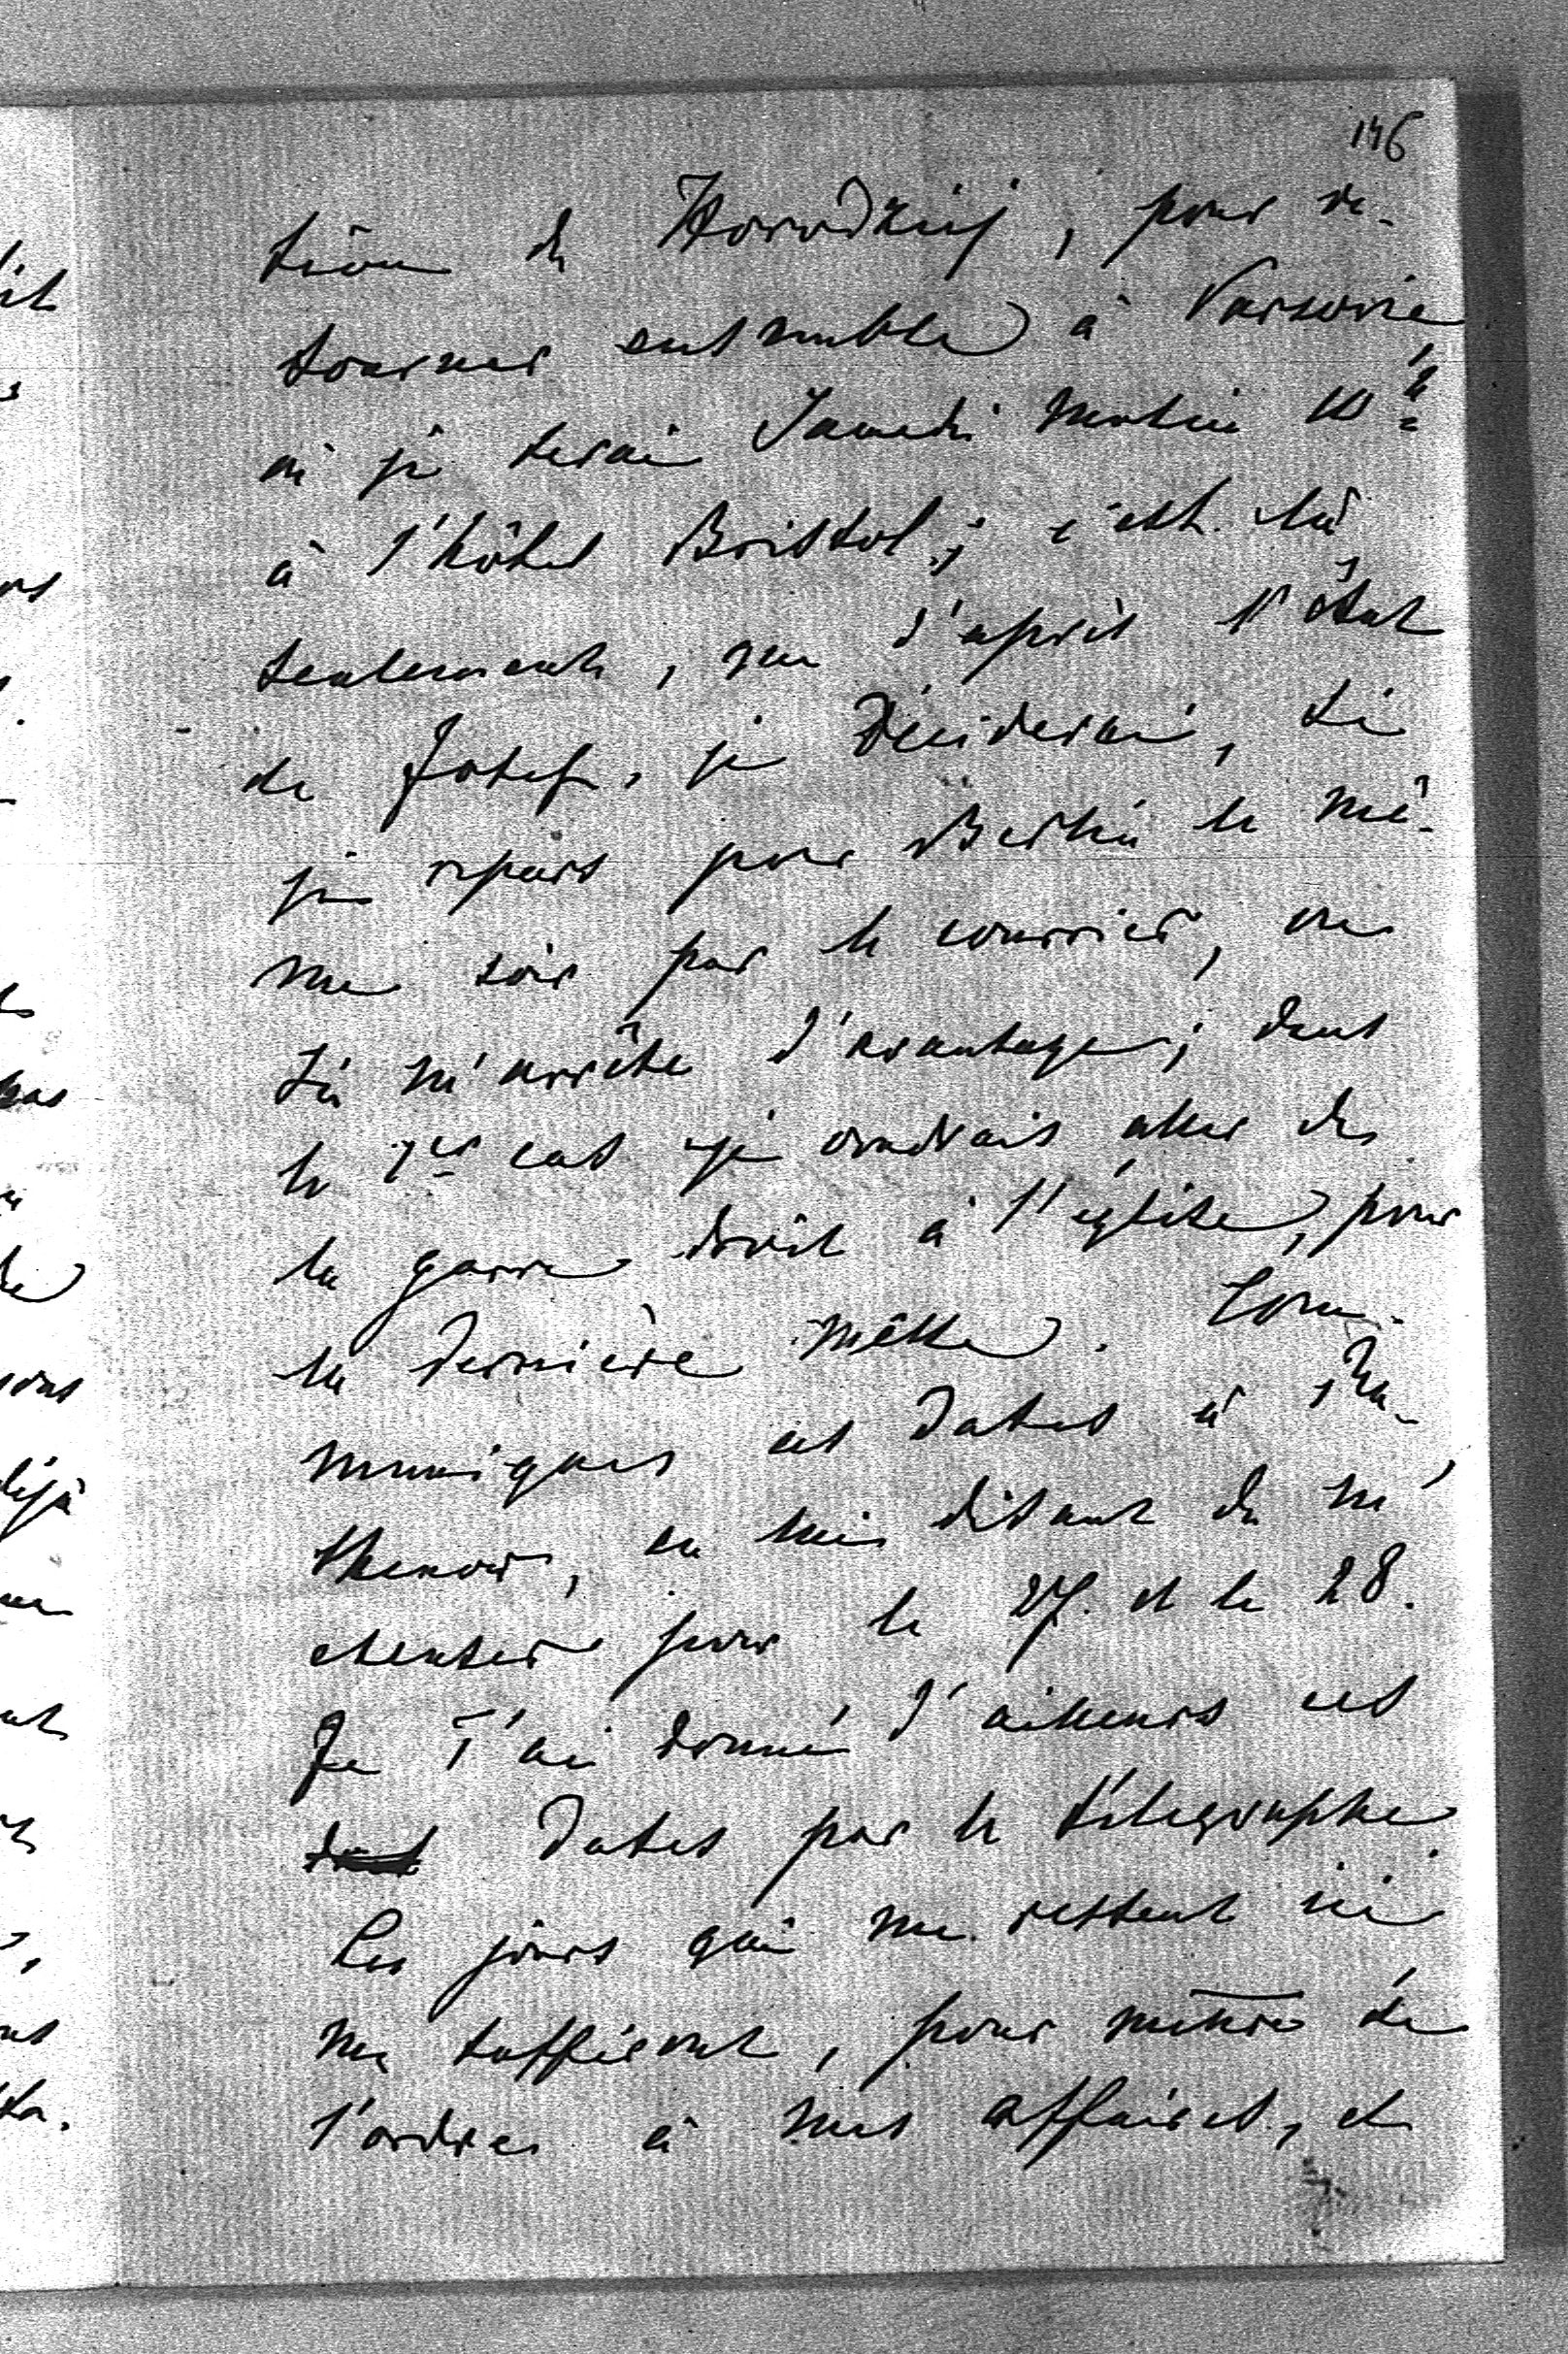 146
tion de Horodziej, pour re-
tourner ensemble à Varsovie,
où je serai Samedi matin
à l'hôtel Bristol; c'est là
seulement, que d'après l'état
de Josef, je déciderai, si
je repars pour Berlin le mê-
me soir par le courrier, ou
si m'arrête d'avantage; dans
le 1er cas je voudrais aller de
la garre droit à l'église, pour
la dernière messe. Com-
muniques ces dates à
, en lui disant de m'
cheuter pour le 27. et le 28.
Je T'ai donné d'ailleurs ces
dates par le télégraphe.
Les jours qui me restent ici
me suffisent, pour mettre de
l'ordre à mes affaires, et